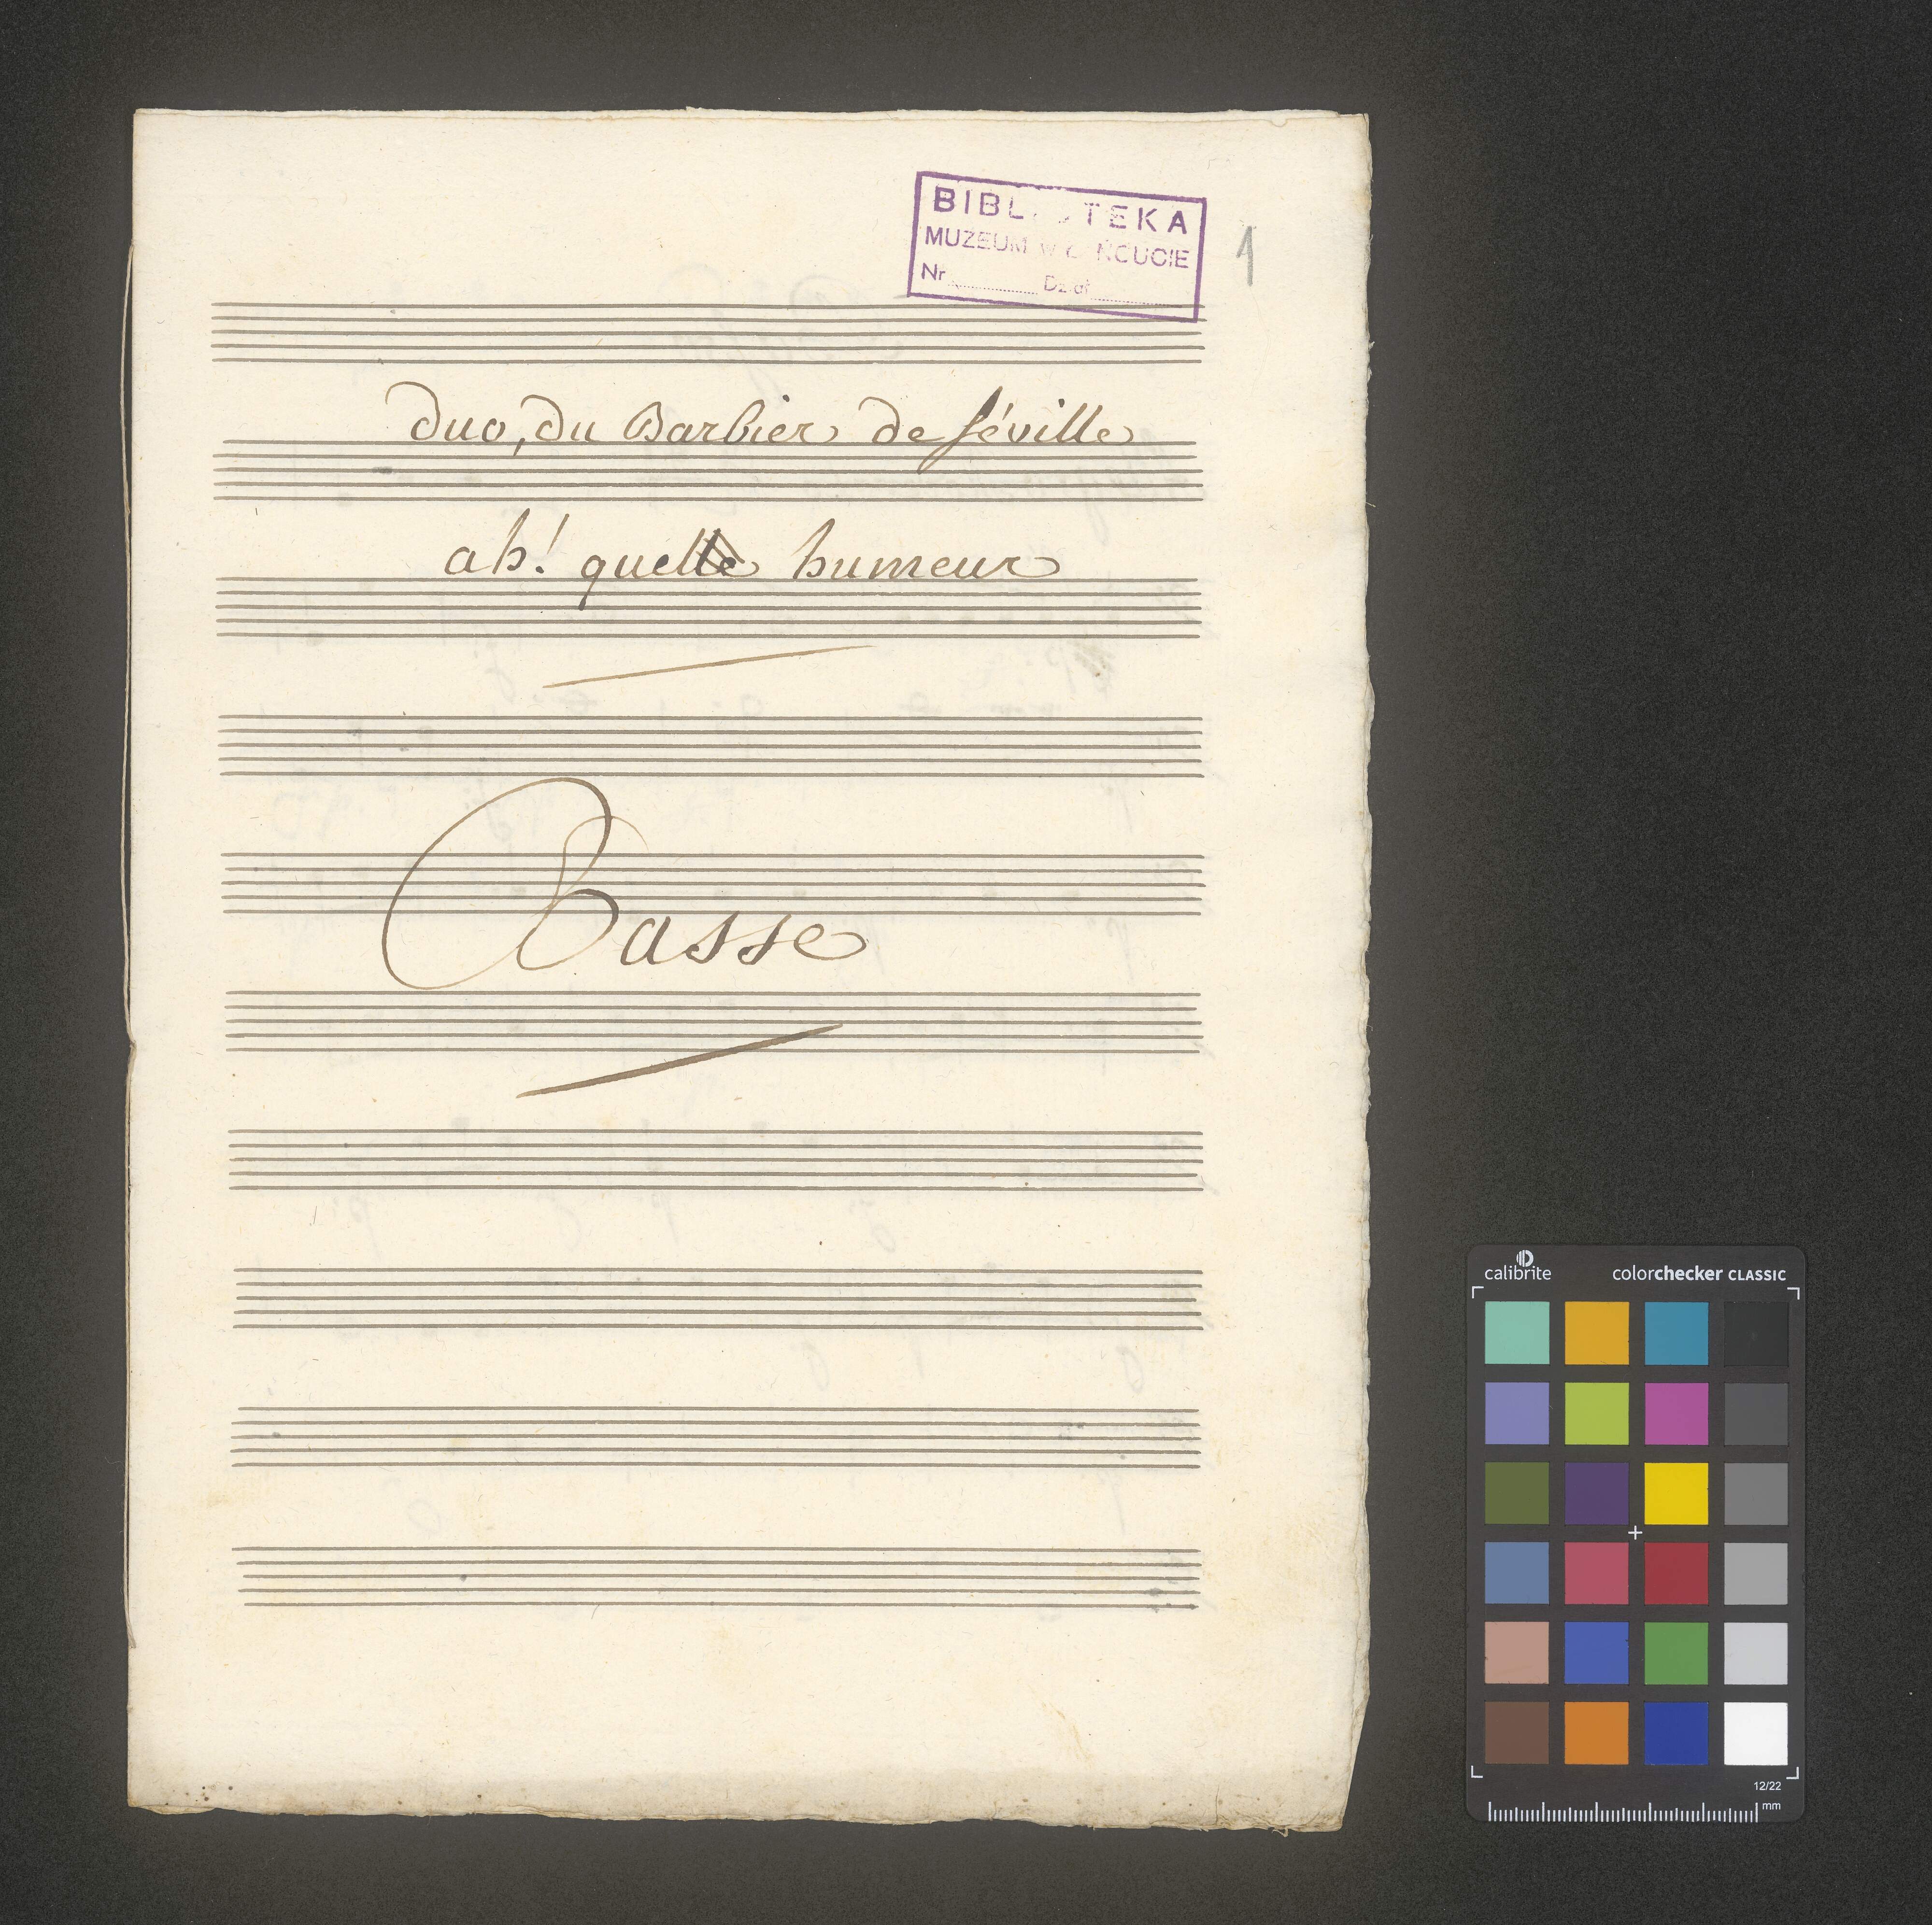 BIBLIOTEKA
MUZEUM W ŁAŃCUCIE
Nr Dział
1
duo, du Barbier de séville
ah! quelle humeur
Basse
calibrite colorchecker CLASSIC
12/22
mm